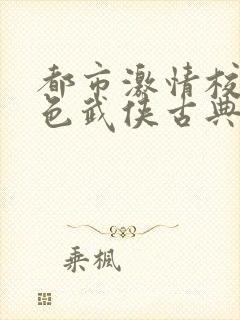 都市激情校
色武侠古典
乘枫